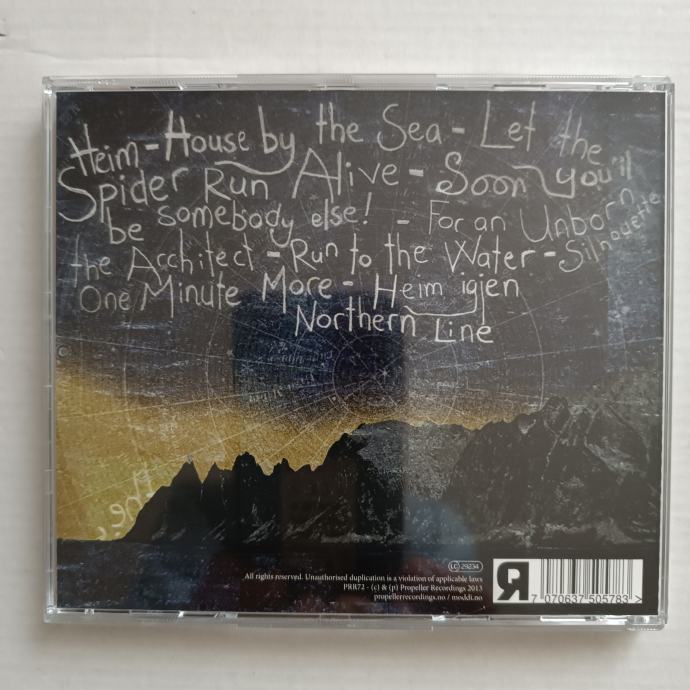 Heim - House by the Sea - Let the
Spider Run Alive - Soon you'll
be somebody else! - For an Unborn
the Architect - Run to the Water - Silhouette
One Minute More - Heim igjen
Northern Line
the
LC 29234
All rights reserved. Unauthorised duplication is a violation of applicable laws
PRR72 - (c) & (p) Propeller Recordings 2013
propellerrecordings.no / moddi.no
R
7 070637 505783 >